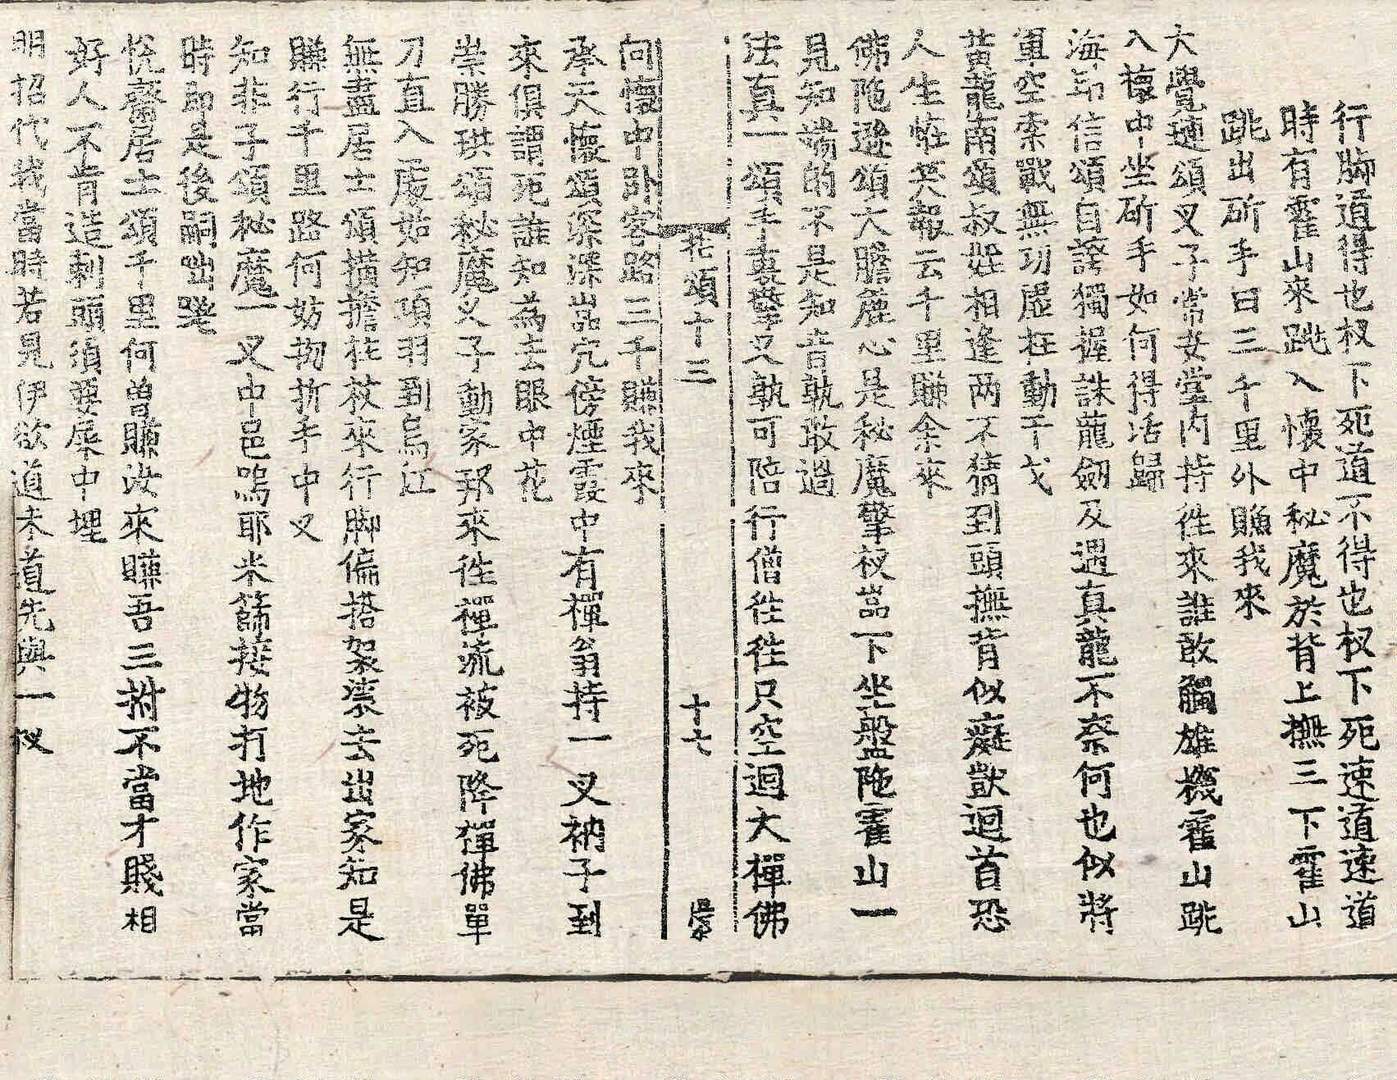 行脚道得也杈下死道不得也杈下死速道速道
時有霍山來跳入懷中秘魔於背上撫三下霍山
跳出斫手曰三千里外賺我來
大覺璉頌叉子常妾堂內持徃來誰敢觸雄機霍山跳
入懷中坐斫手如何得活歸
海印信頌自誇獨握誅龍劔及遇真龍不奈何也似將
軍空索戰無功虛枉動干戈
黃龍南頌叔姪相逢兩不猜到頭撫背似癡獃迴首恐
人生恠笑報云千里賺余來
佛陁遜頌大膽麤心是秘魔擎杈嵓下坐盤陁霍山一
見知端的不是知音孰敢過
法真一頌手裏擎叉孰可陪行僧徃徃只空迴大禪佛
拈頌十三 十七
向懷中卧客路三千賺我來
承天懷頌深深嵓宂傍煙霞中有禪翁持一叉衲子到
來俱謂死誰知為去眼中花
崇勝珙頌秘魔叉子動家邦來徃禪流被死降禪佛單
刀直入處始知項羽到烏江
無盡居士頌撗擔柱杖來行脚偏搭袈裟去出家知是
賺行千里路何妨拗折手中叉
知非子頌秘魔一叉中邑嗚耶米篩接物打地作家當
時即是後嗣咄㘞
悅齋居士頌千里何曾賺汝來賺吾三拊不當才賤相
好人不肯造剌頭須要屎中埋
明招代我當時若見伊欲道未道先與一杈